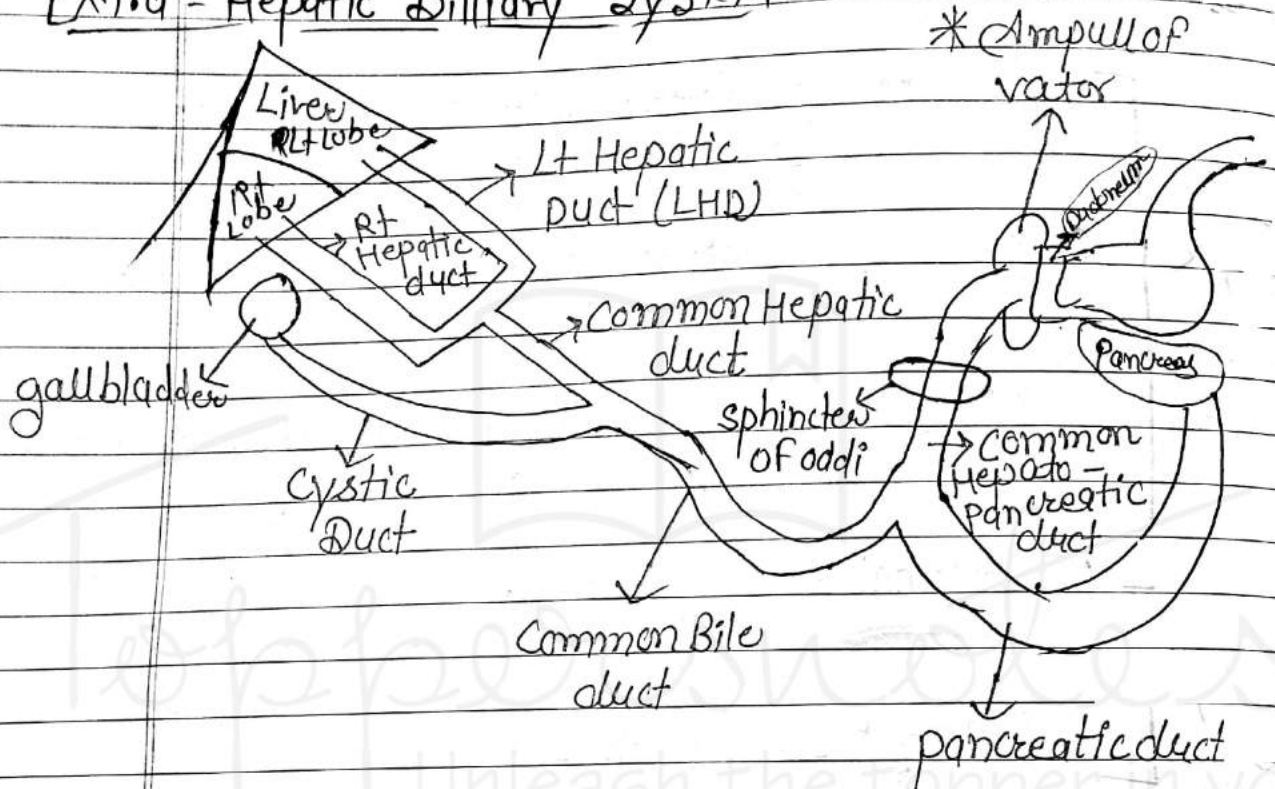 Extra - Hepatic Billiary Syste
* Ampull of
vator
Liver
Lt lobe
Rt
Lobe
Lt Hepatic
Duct (LHD)
Rt
Hepatic
duct
Duodneum
Common Hepatic
duct
Pancreas
gallbladder
sphincter
of oddi
Common
Hepato-
pancreatic
duct
Cystic
Duct
Common Bile
duct
pancreatic duct
Toppersnotes
Unleash the topper in yo